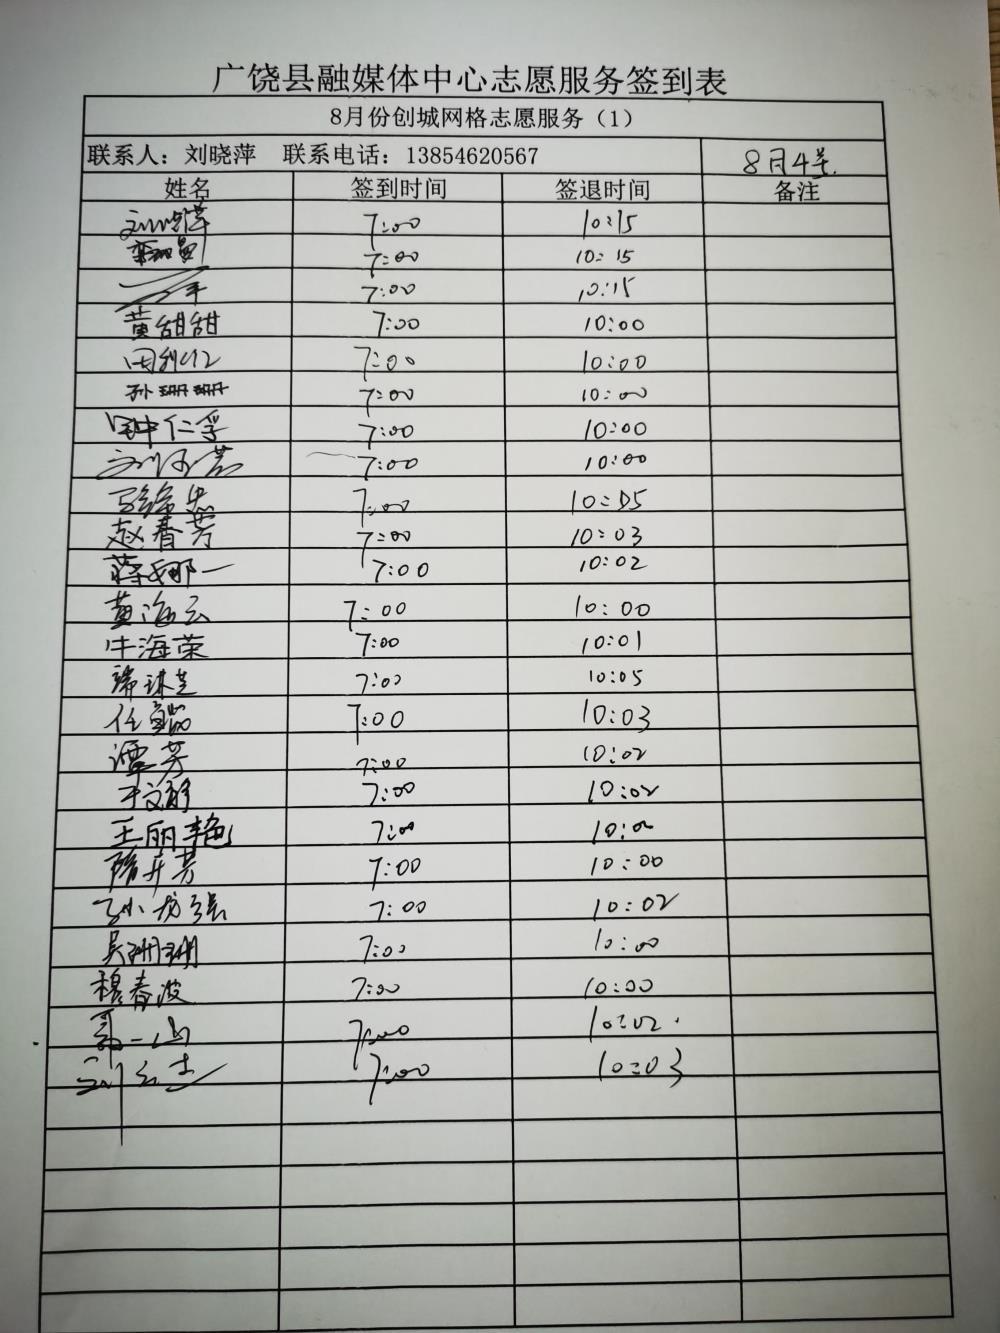 广饶县融媒体中心志愿服务签到表
8月份创城网格志愿服务（1）
联系人：刘晓萍 联系电话：13854620567 8月4号
姓名 签到时间 签退时间 备注
刘晓萍 7:00 10:15
7:00 10:15
7:00 10:15
黄甜甜 7:00 10:00
7:00 10:00
孙珊珊 7:00 10:00
钟仁孚 7:00 10:00
7:00 10:00
7:00 10:05
赵春芳 7:00 10:03
7:00 10:02
黄海云 7:00 10:00
牛海荣 7:00 10:01
7:00 10:05
7:00 10:03
谭芳 7:00 10:02
7:00 10:02
王丽艳 7:00 10:00
隋开芳 7:00 10:00
7:00 10:02
吴珊珊 7:00 10:00
穆春波 7:00 10:00
7:00 10:02
7:00 10:03